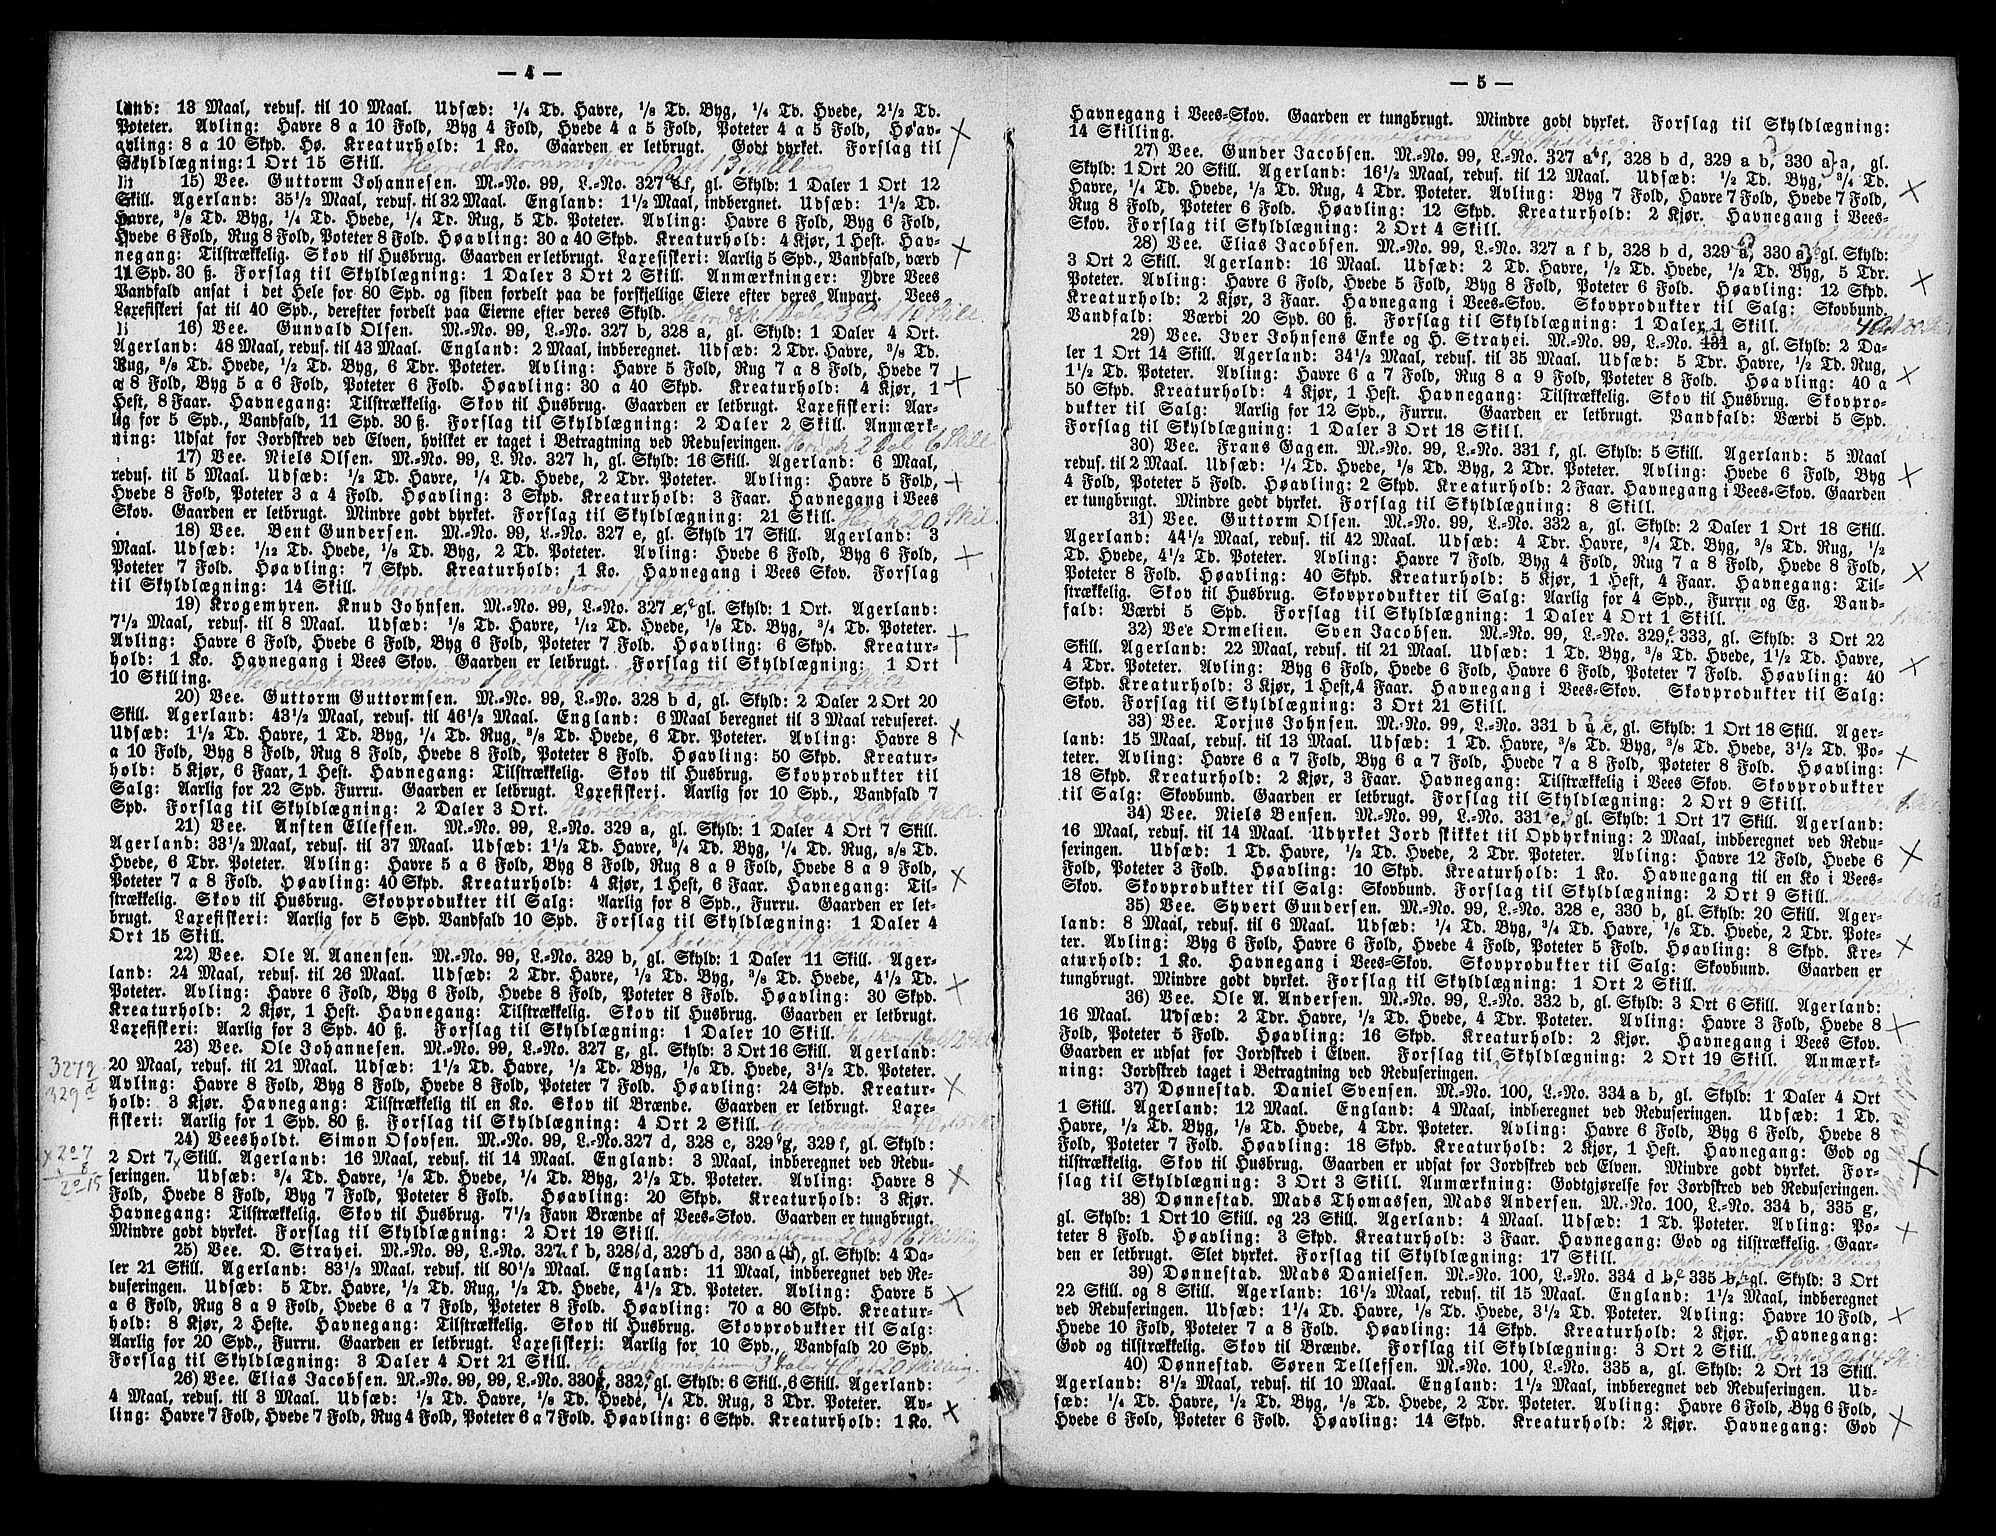 — 4 —
land: 13 Maal, redus. til 10 Maal. Udsæd: 1/4 Td. Havre, 1/8 Td. Byg, 1/4 Td. Hvede, 2 1/2 Td.
Poteter. Avling: Havre 8 a 10 Fold, Byg 4 Fold, Hvede 4 a 5 Fold, Poteter 4 a 5 Fold, Høav-
avling: 8 a 10 Skp. Hø. Kreaturhold: 1 Ko. Gaarden er letbrugt. Godt dyrket. Forslag til
Skyldlægning: 1 Ort 15 Skill. Herredskommission 1 Ort 13 Skilling
15) Vee. Guttorm Johannesen. M.-No. 99, L.-No. 327 f, gl. Skyld: 1 Daler 1 Ort 12
Skill. Agerland: 35 1/2 Maal, redus. til 32 Maal. England: 1 1/2 Maal, indbergnet. Udsæd: 1 1/2 Td.
Havre, 3/8 Td. Byg, 1/4 Td. Hvede, 1/4 Td. Rug, 5 Td. Poteter. Avling: Havre 6 Fold, Byg 6 Fold,
Hvede 6 Fold, Rug 8 Fold, Poteter 8 Fold. Høavling: 30 a 40 Skpd. Kreaturhold: 4 Kjør, 1 Hest. Hav-
negang: Tilstrækkelig. Skov til Husbrug. Gaarden er letbrugt. Laxefiskeri: Aarlig 5 Spd., Vandfald, værd
11 Spd. 30 ß. Forslag til Skyldlægning: 1 Daler 3 Ort 2 Skill. Anmærkninger: Ydre Vees
Vandfald ansat i det Hele for 80 Spd. og siden fordelt paa de forskjellige Eiere efter deres Anpart. Vees
Laxefiskeri sat til 40 Spd., derefter fordelt paa Eierne efter deres Skyld. Herredsk 1 Daler 3 Ort 10 Skill.
16) Vee. Gunvald Olsen. M.-No. 99, L.-No. 327 b, 328 a, gl. Skyld: 1 Daler 4 Ort.
Agerland: 48 Maal, redus. til 43 Maal. England: 2 Maal, indberegnet. Udsæd: 2 Tdr. Havre, 3/8 Td.
Rug, 3/8 Td. Hvede, 1/2 Td. Byg, 6 Tdr. Poteter. Avling: Havre 5 Fold, Rug 7 a 8 Fold, Hvede 7
a 8 Fold, Byg 5 a 6 Fold, Poteter 6 Fold. Høavling: 30 a 40 Skpd. Kreaturhold: 4 Kjør, 1
Hest, 8 Faar. Havnegang: Tilstrækkelig. Skov til Husbrug. Gaarden er letbrugt. Laxefiskeri: Aar-
lig for 5 Spd., Vandfald, 11 Spd. 30 ß. Forslag til Skyldlægning: 2 Daler 2 Skill. Anmærk-
ning: Udsat for Jordskred ved Elven, hvilket er taget i Betragtning ved Reduseringen. Herredsk 2 Dal 6 Skill
17) Vee. Niels Olsen. M.-No. 99, L. No. 327 h, gl. Skyld: 16 Skill. Agerland: 6 Maal,
redus. til 5 Maal. Udsæd: 1/2 Td. Havre, 1/4 Td. Hvede, 2 Tdr. Poteter. Avling: Havre 5 Fold,
Hvede 8 Fold, Poteter 3 a 4 Fold. Høavling: 3 Skpd. Kreaturhold: 3 Faar. Havnegang i Vees
Skov. Gaarden er letbrugt. Mindre godt dyrket. Forslag til Skyldlægning: 21 Skill. Herredsk 20 Skil.
18) Vee. Bent Gundersen. M.-No. 99, L.-No. 327 e, gl. Skyld 17 Skill. Agerland: 3
Maal. Udsæd: 1/12 Td. Hvede, 1/8 Td. Byg, 2 Td. Poteter. Avling: Hvede 6 Fold, Byg 6 Fold,
Poteter 7 Fold. Høavling: 7 Skpd. Kreaturhold: 1 Ko. Havnegang i Vees Skov. Forslag
til Skyldlægning: 14 Skill. Herredskommission
19) Krogemyren. Knud Johnsen. M.-No. 99, L.-No. 327 c, gl. Skyld: 1 Ort. Agerland:
7 1/2 Maal, redus. til 8 Maal. Udsæd: 1/8 Td. Havre, 1/12 Td. Hvede, 1/8 Td. Byg, 3/4 Td. Poteter.
Avling: Havre 6 Fold, Hvede 6 Fold, Byg 6 Fold, Poteter 7 Fold. Høavling: 6 Skpd. Kreatur-
hold: 1 Ko. Havnegang i Vees Skov. Gaarden er letbrugt. Forslag til Skyldlægning: 1 Ort
10 Skilling. Herredskommission 1 Ort 8
20) Vee. Guttorm Guttormsen. M.-No. 99, L.-No. 328 b d, gl. Skyld: 2 Daler 2 Ort 20
Skill. Agerland: 43 1/2 Maal, redus. til 46 1/2 Maal. England: 6 Maal beregnet til 3 Maal reduseret.
Udsæd: 1 1/2 Td. Havre, 1 Td. Byg, 1/4 Td. Rug, 3/8 Td. Hvede, 6 Tdr. Poteter. Avling: Havre 8
a 10 Fold, Byg 8 Fold, Rug 8 Fold, Hvede 8 Fold, Poteter 8 Fold. Høavling: 50 Skpd. Kreatur-
hold: 5 Kjør, 6 Faar, 1 Hest. Havnegang: Tilstrækkelig. Skov til Husbrug. Skovprodukter til
Salg: Aarlig for 22 Spd. Furru. Gaarden er letbrugt. Laxefiskeri. Aarlig for 10 Spd., Vandfald 7
Spd. Forslag til Skyldlægning: 2 Daler 3 Ort. Herredskommission 2 Daler 3 Ort 6 Skill.
21) Vee. Ansten Ellefsen. M.-No. 99, L.-No. 329 a, gl. Skyld: 1 Daler 4 Ort 7 Skill.
Agerland: 33 1/2 Maal, redus. til 37 Maal. Udsæd: 1 1/2 Td. Havre, 3/4 Td. Byg, 1/4 Td. Rug, 3/8 Td.
Hvede, 6 Tdr. Poteter. Avling: Havre 5 a 6 Fold, Byg 8 Fold, Rug 8 a 9 Fold, Hvede 8 a 9 Fold,
Poteter 7 a 8 Fold. Høavling: 40 Skpd. Kreaturhold: 4 Kjør, 1 Hest, 6 Faar. Havnegang: Til-
strækkelig. Skov til Husbrug. Skovprodukter til Salg: Aarlig for 8 Spd., Furru. Gaarden er let-
brugt. Laxefiskeri: Aarlig for 5 Spd. Vandfald 10 Spd. Forslag til Skyldlægning: 1 Daler 4
Ort 15 Skill. Herredskommissionen 1 Daler 4 Ort 19 Skilling
22) Vee. Ole A. Aanensen. M.-No. 99, L.-No. 329 b, gl. Skyld: 1 Daler 11 Skill. Ager-
land: 24 Maal, redus. til 26 Maal. Udsæd: 2 Tdr. Havre, 1/2 Td. Byg, 3/8 Td. Hvede, 4 1/2 Td.
Poteter. Avling: Havre 6 Fold, Byg 6 Fold, Hvede 8 Fold, Poteter 8 Fold. Høavling: 30 Skpd.
Kreaturhold: 2 Kjør, 1 Hest. Havnegang: Tilstrækkelig. Skov til Husbrug. Gaarden er letbrugt.
Laxefiskeri: Aarlig for 3 Spd. 40 ß. Forslag til Skyldlægning: 1 Daler 10 Skill.
23) Vee. Ole Johannesen. M.-No. 99, L.-No. 327 g, gl. Skyld: 3 Ort 16 Skill. Agerland:
20 Maal, redus. til 21 Maal. Udsæd: 1 1/2 Td. Havre, 1/2 Td. Byg, 1/8 Td. Hvede, 3 1/2 Td. Poteter.
Avling: Havre 8 Fold, Byg 8 Fold, Hvede 8 Fold, Poteter 7 Fold. Høavling: 24 Skpd. Kreatur-
hold: 3 Kjør. Havnegang: Tilstrækkelig til en Ko. Skov til Brænde. Gaarden er letbrugt. Laxe-
fiskeri: Aarlig for 1 Spd. 80 ß. Forslag til Skyldlægning: 4 Ort 2 Skill.
24) Veesholdt. Simon Osovsen. M.-No. 99, L.-No. 327 d, 328 c, 329 g, 329 f, gl. Skyld:
2 Ort 7 Skill. Agerland: 16 Maal, redus. til 14 Maal. England: 3 Maal, indberegnet ved Redu-
seringen. Udsæd: 3/4 Td. Havre, 1/8 Td. Hvede, 1/4 Td. Byg, 2 1/2 Td. Poteter. Avling: Havre 8
Fold, Hvede 8 Fold, Byg 7 Fold, Poteter 8 Fold. Høavling: 20 Skpd. Kreaturhold: 3 Kjør.
Havnegang: Tilstrækkelig. Skov til Husbrug. 7 1/2 Favn Brænde af Vees-Skov. Gaarden er tungbrugt.
Mindre godt dyrket. Forslag til Skyldlægning: 2 Ort 19 Skill. Herredskommissionen 2 Ort 16 Skilling
25) Vee. D. Strayei. M.-No. 99, L.-No. 327 f b, 328 d, 329 b d, 330 a (b), gl. Skyld: 4 Da-
ler 21 Skill. Agerland: 83 1/2 Maal. redus. til 80 1/2 Maal. England: 11 Maal, indberegnet ved Re-
duseringen. Udsæd: 5 Tdr. Havre, 1/2 Td. Rug, 1/2 Td. Hvede, 4 1/2 Td. Poteter. Avling: Havre 5
a 6 Fold, Rug 8 a 9 Fold, Hvede 6 a 7 Fold, Poteter 8 Fold. Høavling: 70 a 80 Skpd. Kreatur-
hold: 8 Kjør, 2 Heste. Havnegang: Tilstrækkelig. Skov til Husbrug. Skovprodukter til Salg:
Aarlig for 20 Spd., Furru. Gaarden er letbrugt. Laxefiskeri: Aarlig for 10 Spd., Vandfald 20 Spd.
Forslag til Skyldlægning: 3 Daler 4 Ort 21 Skill. Herredskommission 3 Daler 4 Ort 20 Skilling.
26) Vee. Elias Jacobsen. M.-No. 99, 99, L.-No. 330g, 332, gl. Skyld: 6 Skill., 6 Skill. Agerland:
4 Maal, redus. til 3 Maal. Udsæd: 1/2 Td. Havre, 1/8 Td. Hvede, 1/4 Td. Rug, 3 Tdr. Poteter. Av-
ling: Havre 7 Fold, Hvede 7 Fold, Rug 4 Fold, Poteter 6 a 7 Fold. Høavling: 6 Skpd. Kreaturhold: 1 Ko.
— 5 —
Havnegang i Vees-Skov. Gaarden er tungbrugt. Mindre godt dyrket. Forslag til Skyldlægning:
14 Skilling. Herredskommissionen 14 Skilling.
27) Vee. Gunder Jacobsen. M.-No. 99, L.-No. 327 a f, 328 b d, 329 a b, 330 a a, gl.
Skyld: 1 Ort 20 Skill. Agerland: 16 1/2 Maal, redus. til 12 Maal. Udsæd: 1/2 Td. Byg, 3/4 Td.
Havre, 1/4 Td. Hvede, 1/8 Td. Rug, 4 Tdr. Poteter. Avling: Byg 7 Fold, Havre 7 Fold, Hvede 7 Fold,
Rug 8 Fold, Poteter 6 Fold. Høavling: 12 Skpd. Kreaturhold: 2 Kjør. Havnegang i Vees-
Skov. Forslag til Skyldlægning: 2 Ort 4 Skill.
28) Vee. Elias Jacobsen. M.-No. 99, L.-No. 327 a f b, 328 b d, 329 a, 330 a, gl. Skyld:
3 Ort 2 Skill. Agerland: 16 Maal. Udsæd: 2 Td. Havre, 1/2 Td. Hvede, 1/2 Td. Byg, 5 Tdr.
Poteter. Avling: Havre 6 Fold, Hvede 5 Fold, Byg 8 Fold, Poteter 6 Fold. Høavling: 12 Skpd.
Kreaturhold: 2 Kjør, 3 Faar. Havnegang i Vees-Skov. Skovprodukter til Salg: Skovbund.
Vandfald: Værdi 20 Spd. 60 ß. Forslag til Skyldlægning: 1 Daler 1 Skill.
29) Vee. Iver Johnsens Enke og H. Strayei. M.-No. 99, L.-No. 131 a, gl. Skyld: 2 Da-
ler 1 Ort 14 Skill. Agerland: 34 1/2 Maal, redus. til 35 Maal. Udsæd: 5 Tdr. Havre, 1/2 Td. Rug,
1 1/2 Td. Poteter. Avling: Havre 6 a 7 Fold, Rug 8 a 9 Fold, Poteter 8 Fold. Høavling: 40 a
50 Skpd. Kreaturhold: 4 Kjør, 1 Hest. Havnegang: Tilstrækkelig. Skov til Husbrug. Skovpro-
dukter til Salg: Aarlig for 12 Spd., Furru. Gaarden er letbrugt. Vandfald: Værdi 5 Spd.
Forslag til Skyldlægning: 1 Daler 3 Ort 18 Skill.
30) Vee. Frans Gagen. M.-No. 99, L.-No. 331 f, gl. Skyld: 5 Skill. Agerland: 5 Maal
redus. til 2 Maal. Udsæd: 1/4 Td. Hvede, 1/8 Td. Byg, 2 Tdr. Poteter. Avling: Hvede 6 Fold, Byg
4 Fold, Poteter 5 Fold. Høavling: 2 Skpd. Kreaturhold: 2 Faar. Havnegang i Vees-Skov. Gaarden
er tungbrugt. Mindre godt dyrket. Forslag til Skyldlægning: 8 Skill.
31) Vee. Guttorm Olsen. M.-No. 99, L.-No. 332 a, gl. Skyld: 2 Daler 1 Ort 18 Skill.
Agerland: 44 1/2 Maal, redus. til 42 Maal. Udsæd: 4 Tdr. Havre, 3/4 Td. Byg, 3/8 Td. Rug, 1/2
Td. Hvede, 4 1/2 Td. Poteter. Avling: Havre 7 Fold. Byg 4 Fold, Rug 7 a 8 Fold, Hvede 8 Fold,
Poteter 8 Fold. Høavling: 40 Skpd. Kreaturhold: 5 Kjør, 1 Hest, 4 Faar. Havnegang: Til-
strækkelig. Skov til Husbrug. Skovprodukter til Salg: Aarlig for 4 Spd., Furru og Eg. Vand-
fald: Værdi 5 Spd. Forslag til Skyldlægning: 1 Daler 4 Ort 1 Skill.
32) Vee Ormelien. Sven Jacobsen. M.-No. 99, L.-No. 329, 333, gl. Skyld: 3 Ort 22
Skill. Agerland: 22 Maal, redus. til 21 Maal. Udsæd: 1 Td. Byg, 3/8 Td. Hvede, 1 1/2 Td. Havre,
4 Tdr. Poteter. Avling: Byg 6 Fold, Hvede 6 Fold, Havre 6 Fold, Poteter 7 Fold. Høavling: 40
Skpd. Kreaturhold: 3 Kjør, 1 Hest, 4 Faar. Havnegang i Vees-Skov. Skovprodukter til Salg:
Skov. Forslag til Skyldlægning: 3 Ort 21 Skill.
33) Vee. Torjus Johnsen. M.-No. 99, L.-No. 331 b a c, gl. Skyld: 1 Ort 18 Skill. Ager-
land: 15 Maal, redus. til 13 Maal. Udsæd: 1 Td. Havre, 3/8 Td. Byg, 3/8 Td. Hvede, 3 1/2 Td. Po-
teter. Avling: Havre 6 a 7 Fold, Byg 6 a 7 Fold, Hvede 7 a 8 Fold, Poteter 8 Fold. Høavling:
18 Skpd. Kreaturhold: 2 Kjør, 3 Faar. Havnegang: Tilstrækkelig i Vees Skov. Skovprodukter
til Salg: Skovbund. Gaarden er letbrugt. Forslag til Skyldlægning: 2 Ort 9 Skill.
34) Vee. Niels Bensen. M.-No. 99, L.-No. 331 e, gl. Skyld: 1 Ort 17 Skill. Agerland:
16 Maal, redus. til 14 Maal. Udyrket Jord skikket til Opdyrkning: 2 Maal, indberegnet ved Redu-
seringen. Udsæd: 1 Td. Havre, 1/2 Td. Hvede, 2 Tdr. Poteter. Avling: Havre 12 Fold, Hvede 6
Fold, Poteter 3 Fold. Høavling: 10 Skpd. Kreaturhold: 1 Ko. Havnegang til en Ko i Vees-
Skov. Skovprodukter til Salg: Skovbund. Forslag til Skyldlægning: 2 Ort 9 Skill.
35) Vee. Syvert Gundersen. M.-No. 99, L.-No. 328 e, 330 b, gl. Skyld: 20 Skill. Ager-
land: 8 Maal, redus. til 6 Maal. Udsæd: 1/4 Td. Byg, 3/4 Td. Havre, 1/8 Td. Hvede, 2 Tdr. Pote-
ter. Avling: Byg 6 Fold, Havre 6 Fold, Hvede 4 Fold, Poteter 5 Fold. Høavling: 8 Skpd. Kre-
aturhold: 1 Ko. Havnegang i Vees-Skov. Skovprodukter til Salg: Skovbund. Gaarden er
tungbrugt. Mindre godt dyrket. Forslag til Skyldlægning: 1 Ort 2 Skill.
36) Vee. Ole A. Andersen. M.-No. 99, L.-No. 332 b, gl. Skyld: 3 Ort 6 Skill. Agerland:
16 Maal. Udsæd: 2 Tdr. Havre, 1/2 Td. Hvede, 4 Tdr. Poteter. Avling: Havre 3 Fold, Hvede 8
Fold, Poteter 5 Fold. Høavling: 16 Skpd. Kreaturhold: 2 Kjør. Havnegang i Vees Skov.
Gaarden er udsat for Jordskred i Elven. Forslag til Skyldlægning: 2 Ort 19 Skill. Anmærk-
ning: Jordskred taget i Betragtning ved Reduseringen.
37) Dønnestad. Daniel Svensen. M.-No. 100, L.-No. 334 a b, gl. Skyld: 1 Daler 4 Ort
1 Skill. Agerland: 12 Maal. England: 4 Maal, indberegnet ved Reduseringen. Udsæd: 1 Td.
Havre, 1/2 Td. Byg, 1/8 Td. Hvede, 4 Tdr. Poteter. Avling: Havre 6 Fold, Byg 6 Fold, Hvede 8
Fold, Poteter 7 Fold. Høavling: 18 Skpd. Kreaturhold: 2 Kjør, 1 Hest. Havnegang: God og
tilstrækkelig. Skov til Husbrug. Gaarden er udsat for Jordskred ved Elven. Mindre godt dyrket. For-
slag til Skyldlægning: 3 Ort 3 Skill. Anmærkning: Godtgjørelse for Jordskred ved Reduseringen.
38) Dønnestad. Mads Thomassen, Mads Andersen. M.-No. 100, L.-No. 334 b, 335 g,
gl. Skyld: 1 Ort 10 Skill. og 23 Skill. Agerland: 4 Maal. Udsæd: 1 Td. Poteter. Avling: Po-
teter 8 Fold. Høavling: 3 Skpd. Kreaturhold: 3 Faar. Havnegang: God og tilstrækkelig. Gaar-
den er letbrugt. Slet dyrket. Forslag til Skyldlægning: 17 Skill. Herredskommission 16 Skilling
39) Dønnestad. Mads Danielsen. M.-No. 100, L.-No. 334 d b, 335 b, gl. Skyld: 3 Ort
22 Skill. og 8 Skill. Agerland: 16 1/2 Maal, redus. til 15 Maal. England: 1 1/2 Maal, indberegnet
ved Reduseringen. Udsæd: 1 1/4 Td. Havre, 1/8 Td. Hvede, 3 1/2 Td. Poteter. Avling: Havre 10 Fold,
Hvede 10 Fold, Poteter 7 a 8 Fold. Høavling: 14 Skpd. Kreaturhold: 2 Kjør. Havnegang:
God og tilstrækkelig. Skov til Brænde. Forslag til Skyldlægning: 3 Ort 2 Skill.
40) Dønnestad. Søren Tellefsen. M.-No. 100, L.-No. 335 a, gl. Skyld: 2 Ort 13 Skill.
Agerland: 8 1/2 Maal, redus. til 10 Maal. England: 1 1/2 Maal, indberegnet ved Reduseringen. Ud-
sæd: 1/4 Td. Havre, 1/2 Td. Byg, 1/8 Td. Hvede, 2 Tdr. Poteter. Avling: Havre 6 Fold, Byg 6 Fold,
Hvede 6 Fold, Poteter 6 Fold. Høavling: 14 Skpd. Kreaturhold: 2 Kjør. Havnegang: God